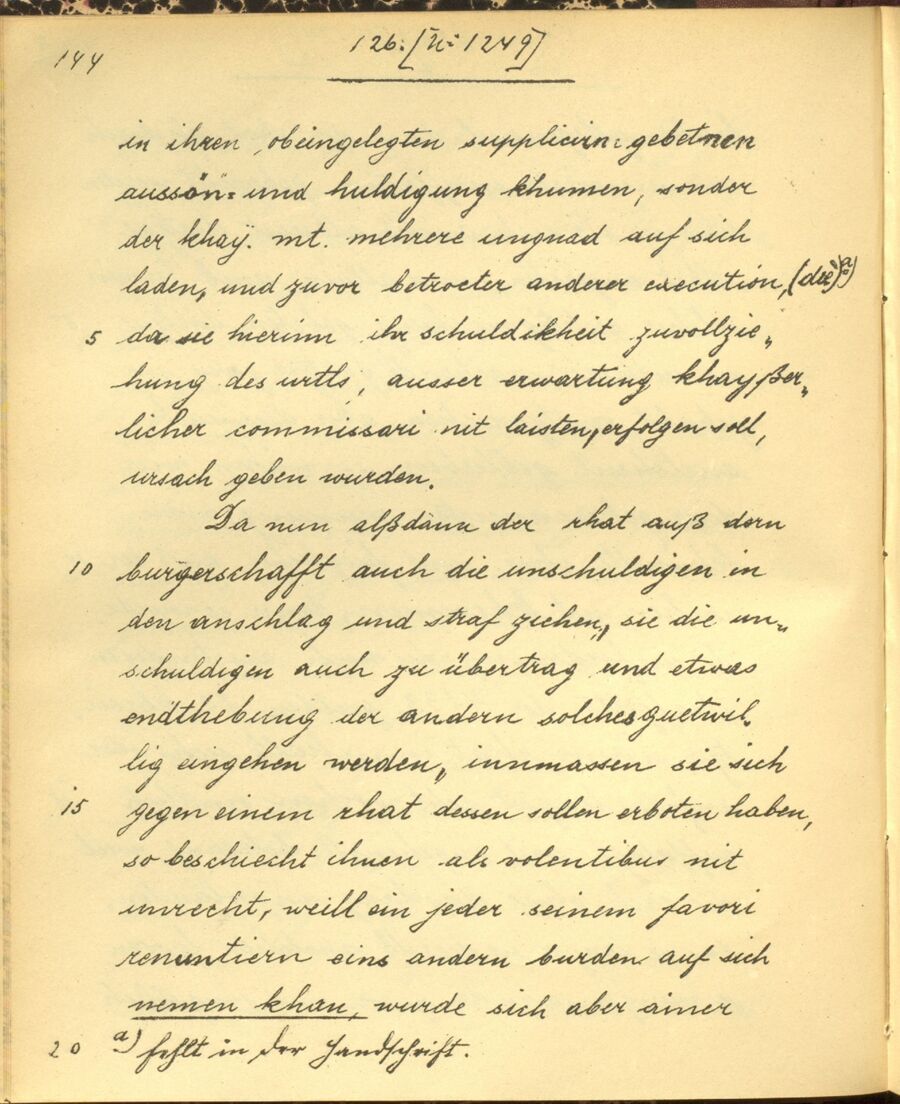 144
126. [N: 1249]
in ihren obeingelegten supplicirn: gebetnen
aussön= und huldigung khumen, sonder
der khaÿ. mt. mehrere ungnad auf sich
laden, und zuvor betroeter anderer execution, (die)a)
5 da sie hierinn ihr schuldikheit zuvollzie„
hung des urtls, ausser erwartung khayßer„
licher commissari nit laisten, erfolgen soll,
ursach geben wurden.
Da nun alßdann der rhat auß dern
10 burgerschafft auch die unschuldigen in
den anschlag und straf ziehen, sie die un„
schuldigen auch zu übertrag und etwas
endthebung der andern solches guetwil„
lig eingehen werden, innmassen sie sich
15 gegen einem rhat dessen sollen erboten haben,
so beschiecht ihnen als volentibus nit
unrecht, weill ein jeder seinem favori
renuntiern eins andern burden auf sich
nemen khan, wurde sich aber ainer
20 a) fehlt in der Handschrift.